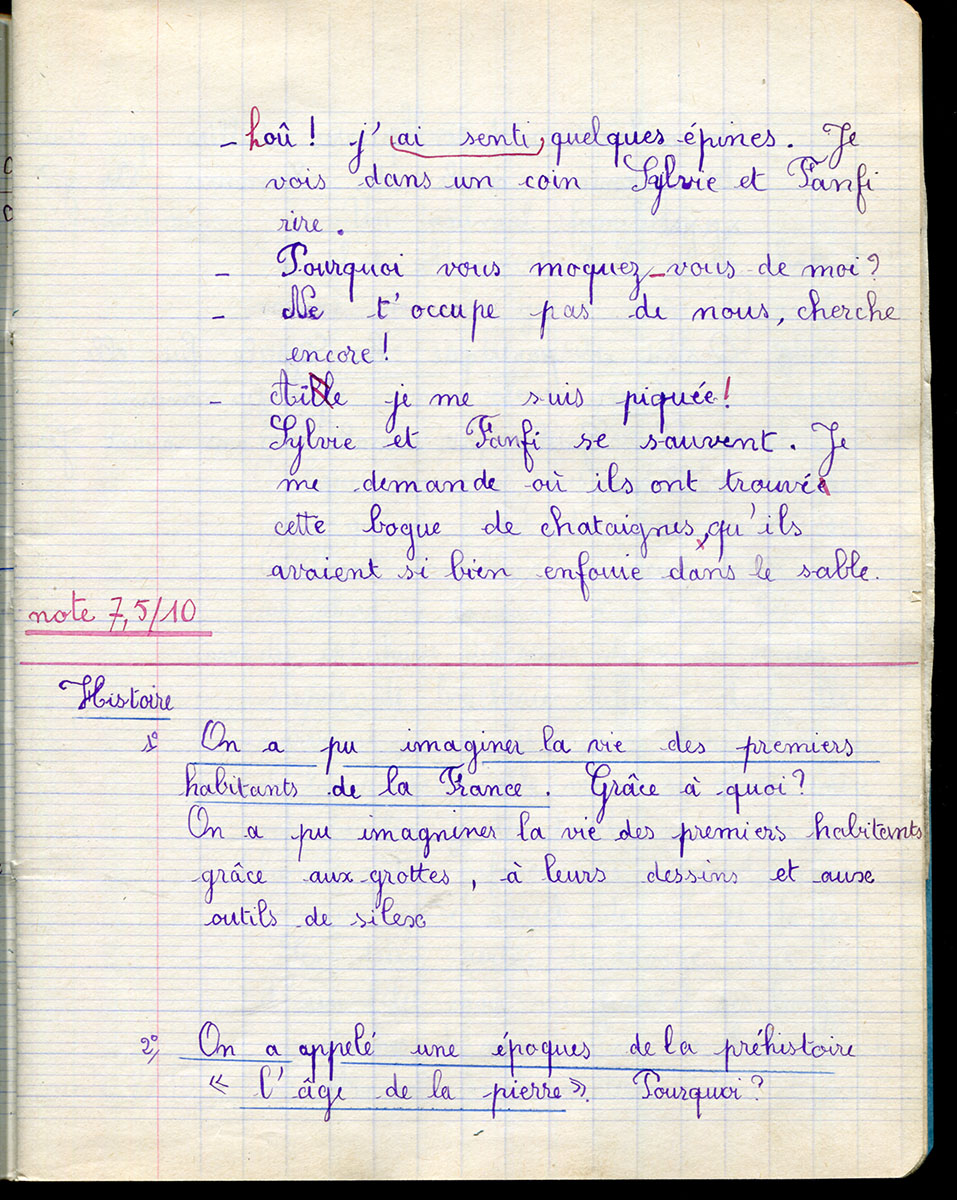 - hoû ! j'ai senti quelques épines. Je
vois dans un coin Sylvie et Fanfi
rire.
- Pourquoi vous moquez-vous de moi ?
- Ne t'occupe pas de nous, cherche
encore !
- Aïe je me suis piquée !
Sylvie et Fanfi se sauvent. Je
me demande où ils ont trouvé
cette bogue de chataignes, qu'ils
avaient si bien enfouie dans le sable.
note 7,5/10
Histoire
1° On a pu imaginer la vie des premiers
habitants de la France. Grâce à quoi ?
On a pu imagniner la vie des premiers habitants
grâce aux grottes, à leurs dessins et aux
outils de silex
2° On a appelé une époques de la préhistoire
« L'âge de la pierre ». Pourquoi ?